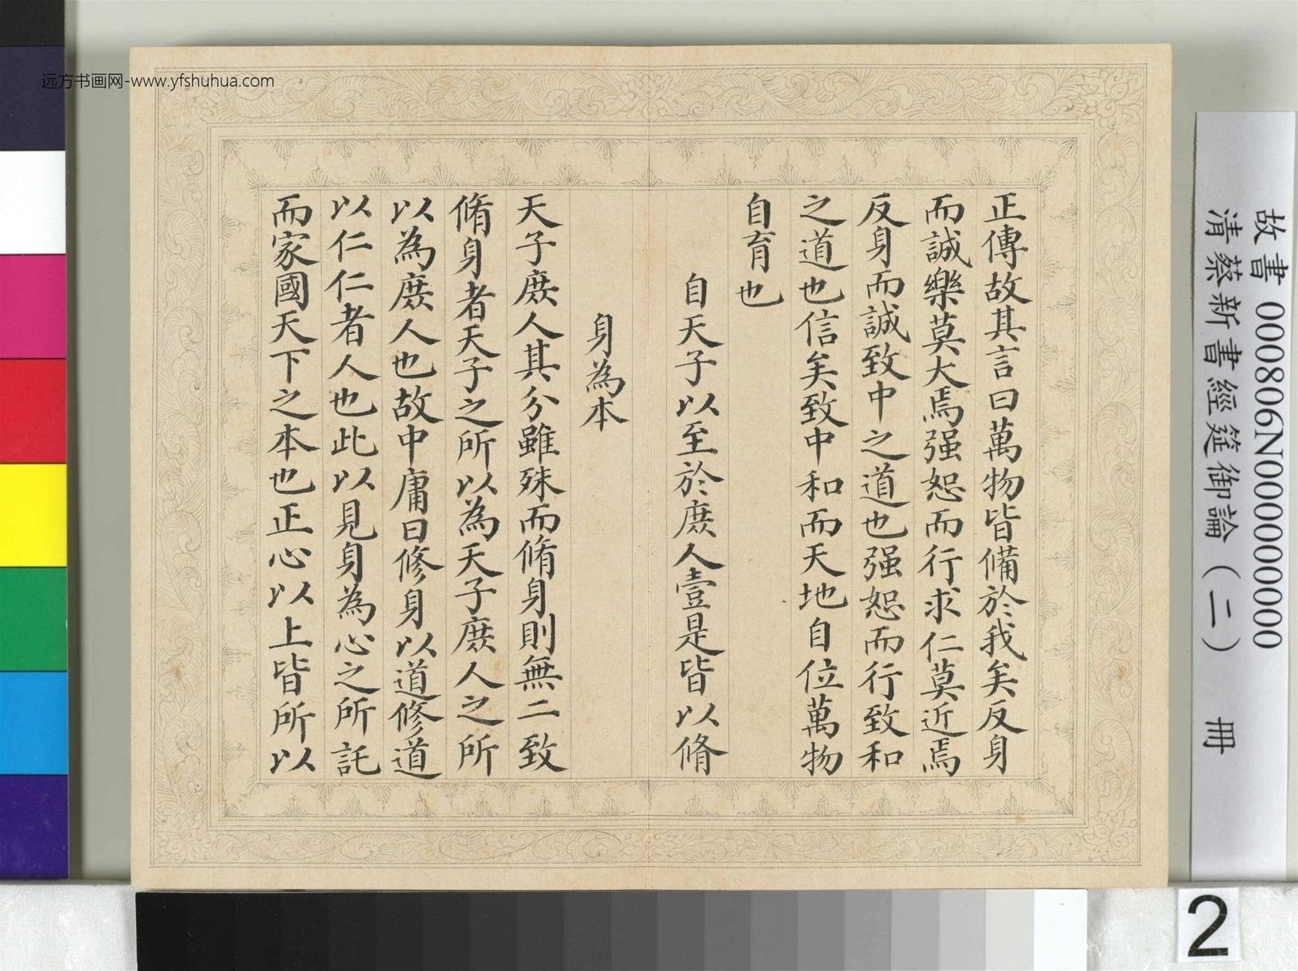 远方书画网-www.yfshuhua.com
故書 000806N000000000
清蔡新書經筵御論（二） 冊
正傳故其言曰萬物皆備於我矣反身
而誠樂莫大焉强恕而行求仁莫近焉
反身而誠致中之道也强恕而行致和
之道也信矣致中和而天地自位萬物
自育也
自天子以至於庶人壹是皆以脩
身為本
天子庶人其分雖殊而脩身則無二致
脩身者天子之所以為天子庶人之所
以為庶人也故中庸曰修身以道修道
以仁仁者人也此以見身為心之所託
而家國天下之本也正心以上皆所以
2